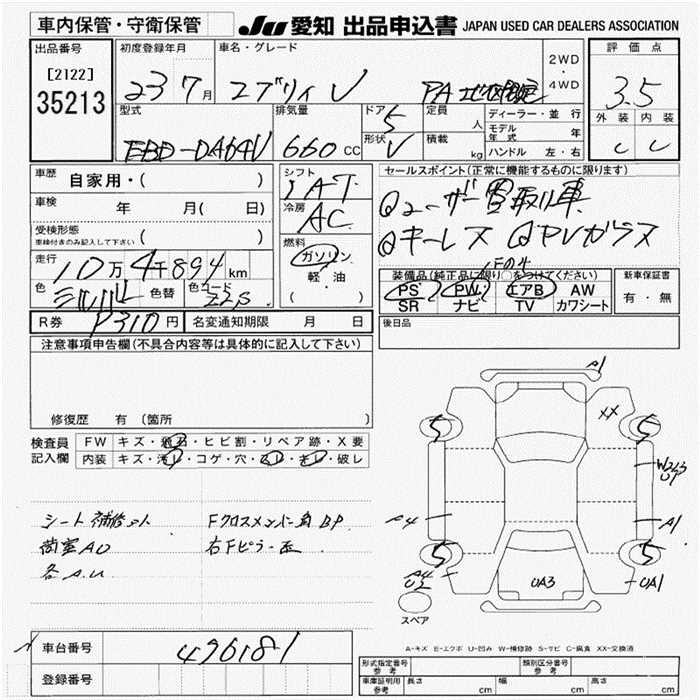 車内保管・守衛保管
JU 愛知 出品申込書 JAPAN USED CAR DEALERS ASSOCIATION
出品番号
[2122]
35213
初度登録年月
23 7月
車名・グレード
エブリィ V
PA
2WD
・
4WD
評価点
3.5
外装 内装
C C
型式
EBD-DA64V
排気量
660 CC
ドア
5
形状
V
定員
人
積載
kg
ディーラー・並行
モデル年式 年
ハンドル 左・右
車歴
自家用・( )
車検
年 月( 日)
受検形態
車検付きのみ記入して下さい ( )
走行
10万4千894 km
色
シルバー
色替
色コード
Z2S
シフト
IAT
冷房
AC
燃料
ガソリン
軽・油
( )
セールスポイント(正常に機能するものに限ります)
ユーザー買取り車
キーレス PVガラス
装備品(純正品に限り○をつけてください)
Fのみ
PS PW エアB AW
SR ナビ TV カワシート
新車保証書
有・無
R券
8310円
名変通知期限 月 日
後日品
注意事項申告欄(不具合内容等は具体的に記入して下さい)
修復歴 有 〔箇所 〕
検査員
記入欄
FW キズ・飛石・ヒビ割・リペア跡・X要
内装 キズ・汚レ・コゲ・穴・スレ・キレ・破レ
シート補修セット
荷室AU
各A.U
Fクロスメンバー角BP
右Fピラー歪
A1
XX
5
5
W2L3
U1
A4
A1
5
5
A4
U2
UA3
UA1
スペア
A-キズ E-エクボ U-凹み W-補修跡 S-サビ C-腐食 XX-交換済
車台番号
496181
登録番号
形式指定番号
参考
類別区分番号
参考
車庫証明用
参考
長さ cm 幅 cm 高さ cm